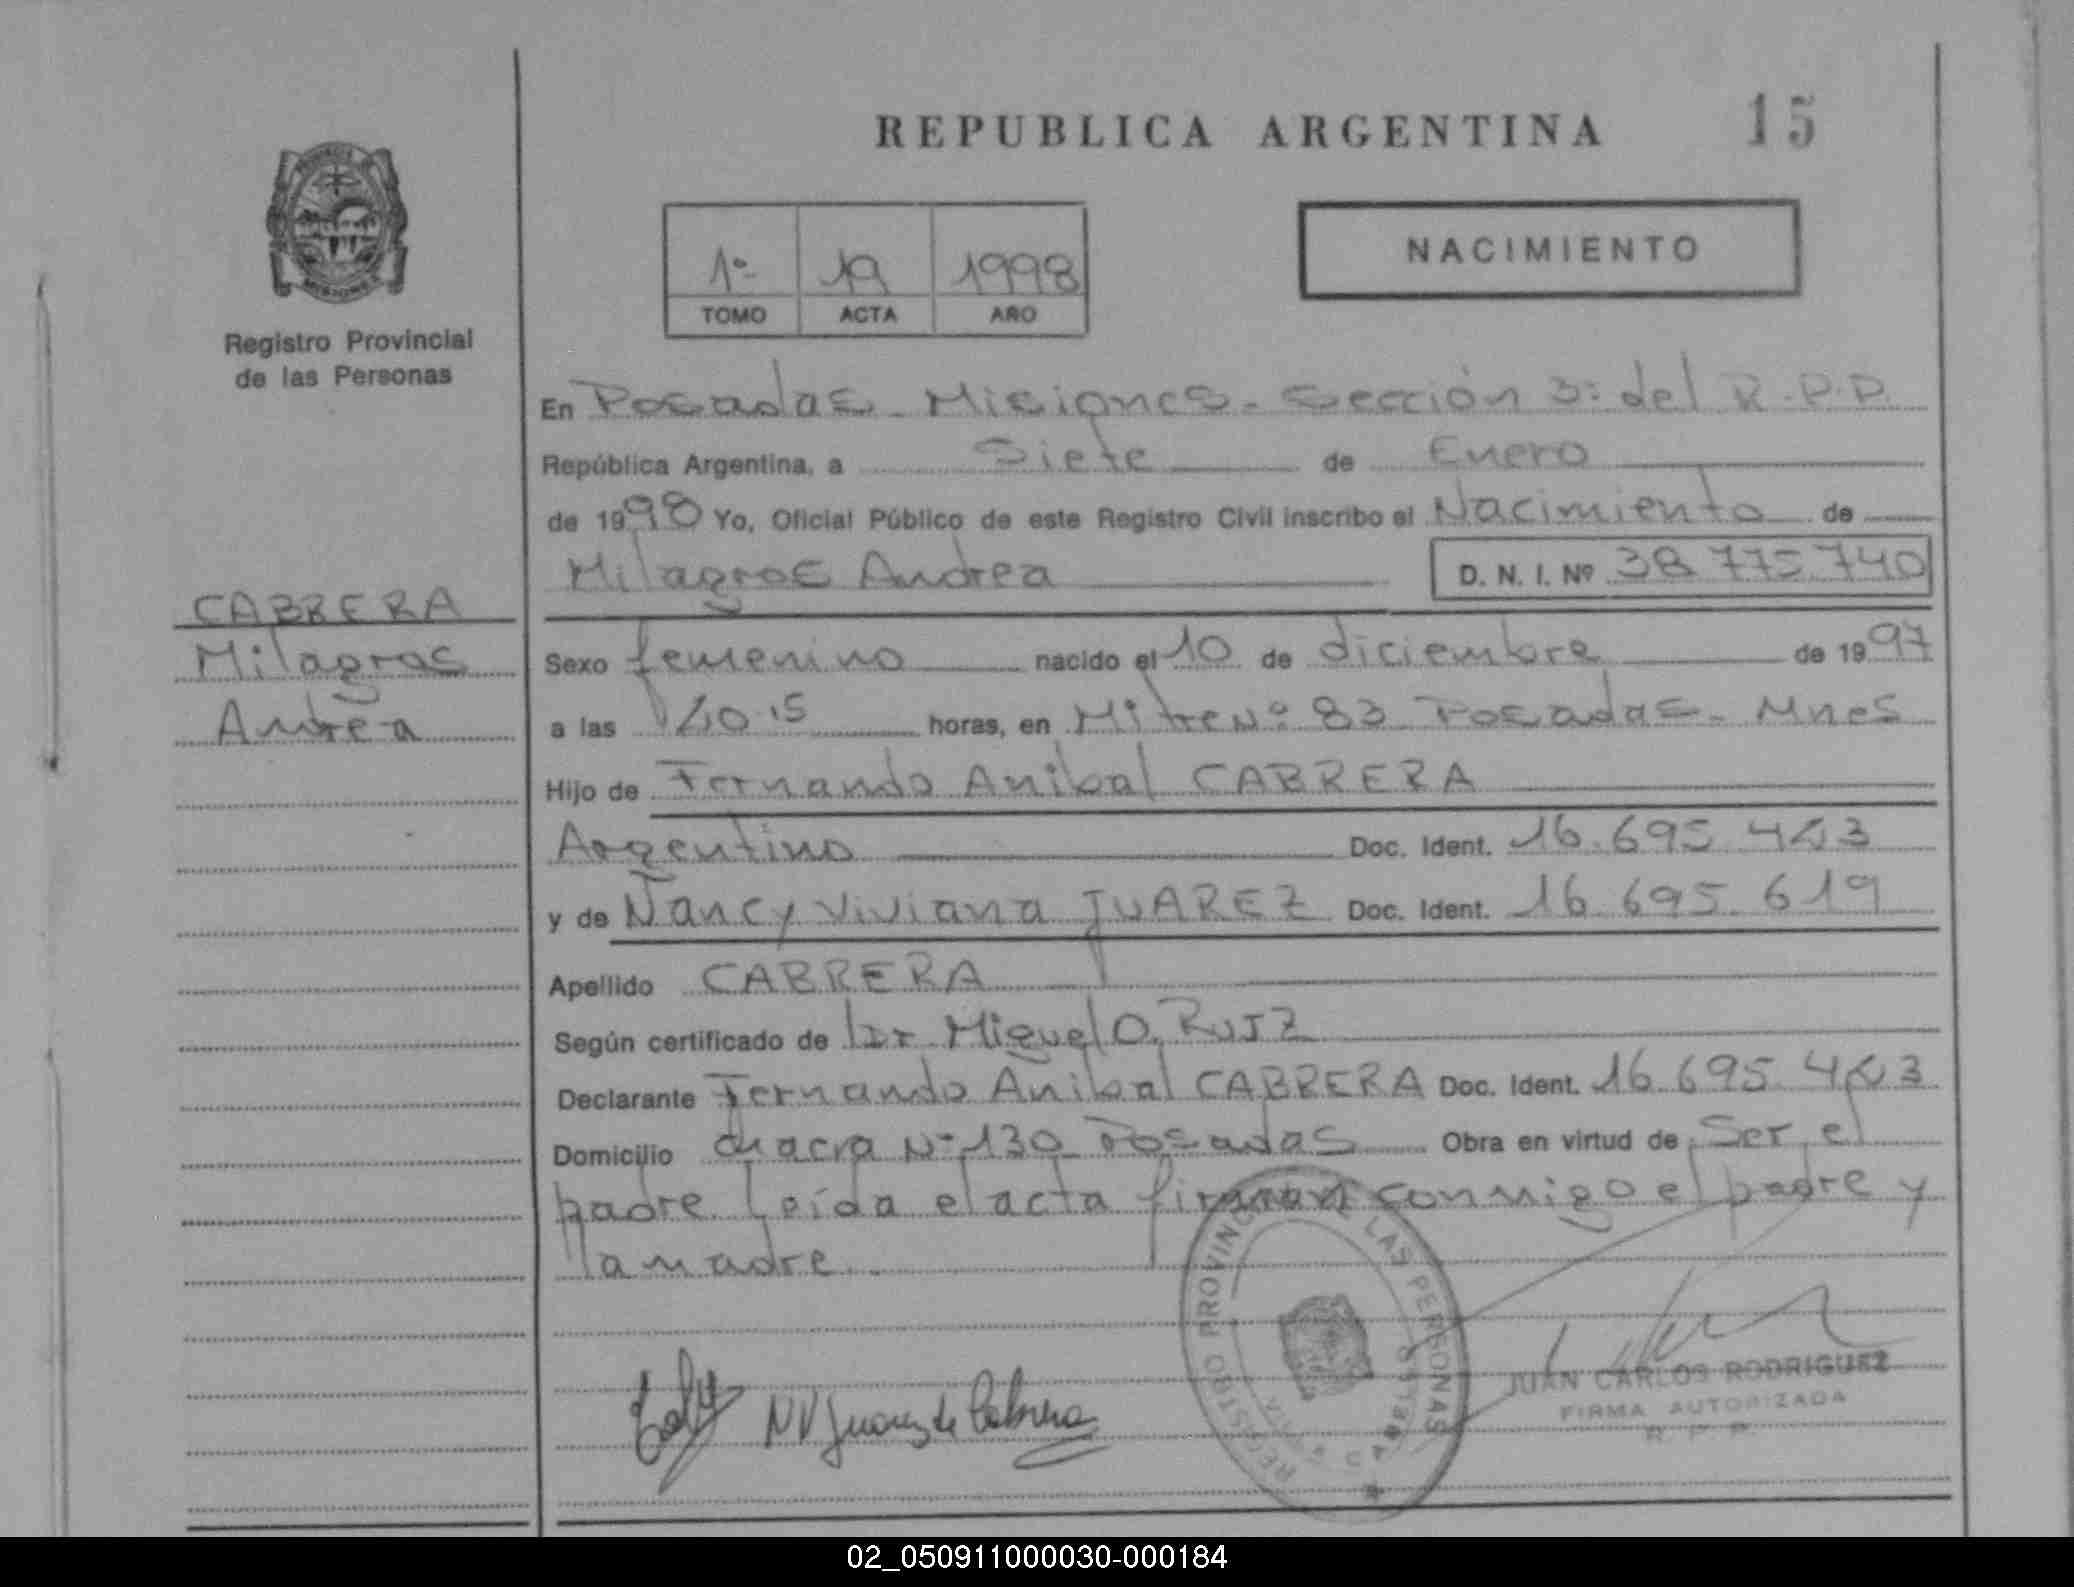 REPUBLICA ARGENTINA 15
1º 19 1998
TOMO ACTA AÑO
NACIMIENTO
Registro Provincial
de las Personas
CABRERA
Milagros
Andrea
En Posadas - Misiones - Sección 3ª del R.P.P.
República Argentina, a Siete de Enero
de 1998 Yo, Oficial Público de este Registro Civil inscribo el Nacimiento de
Milagros Andrea D. N. I. Nº 38.775.740
Sexo femenino nacido el 10 de diciembre de 1997
a las horas, en Mitre Nº 83 Posadas - Mnes
Hijo de Fernando Anibal CABRERA
Argentino Doc. Ident. 16.695.443
y de Nancy Viviana JUAREZ Doc. Ident. 16.695.619
Apellido CABRERA
Según certificado de Dr Miguel O. RUIZ
Declarante Fernando Anibal CABRERA Doc. Ident. 16.695.443
Domicilio chacra Nº 130 Posadas Obra en virtud de Ser el
padre. Leída el acta firman conmigo el padre y
la madre.
NV Juarez de Cabrera
REGISTRO PROVINCIAL DE LAS PERSONAS
JUAN CARLOS RODRIGUEZ
FIRMA AUTORIZADA
R P P
02_050911000030-000184